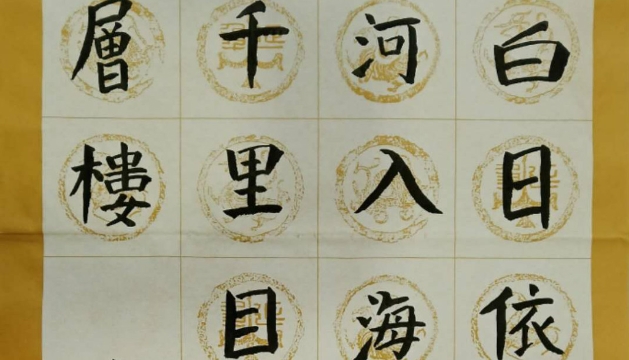 白日依
河入海
千里目
層樓